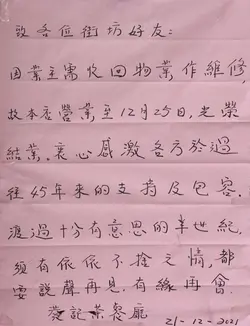 致各位街坊好友：
因業主需收回物業作維修,
故本店營業至12月25日,光榮
結業。衷心感激各方於過
往45年來的支持及包容.
渡過十分有意思的半世紀,
須有依依不捨之情,都
要說聲再見.有緣再會.
葵記茶餐廳
21-12-2021